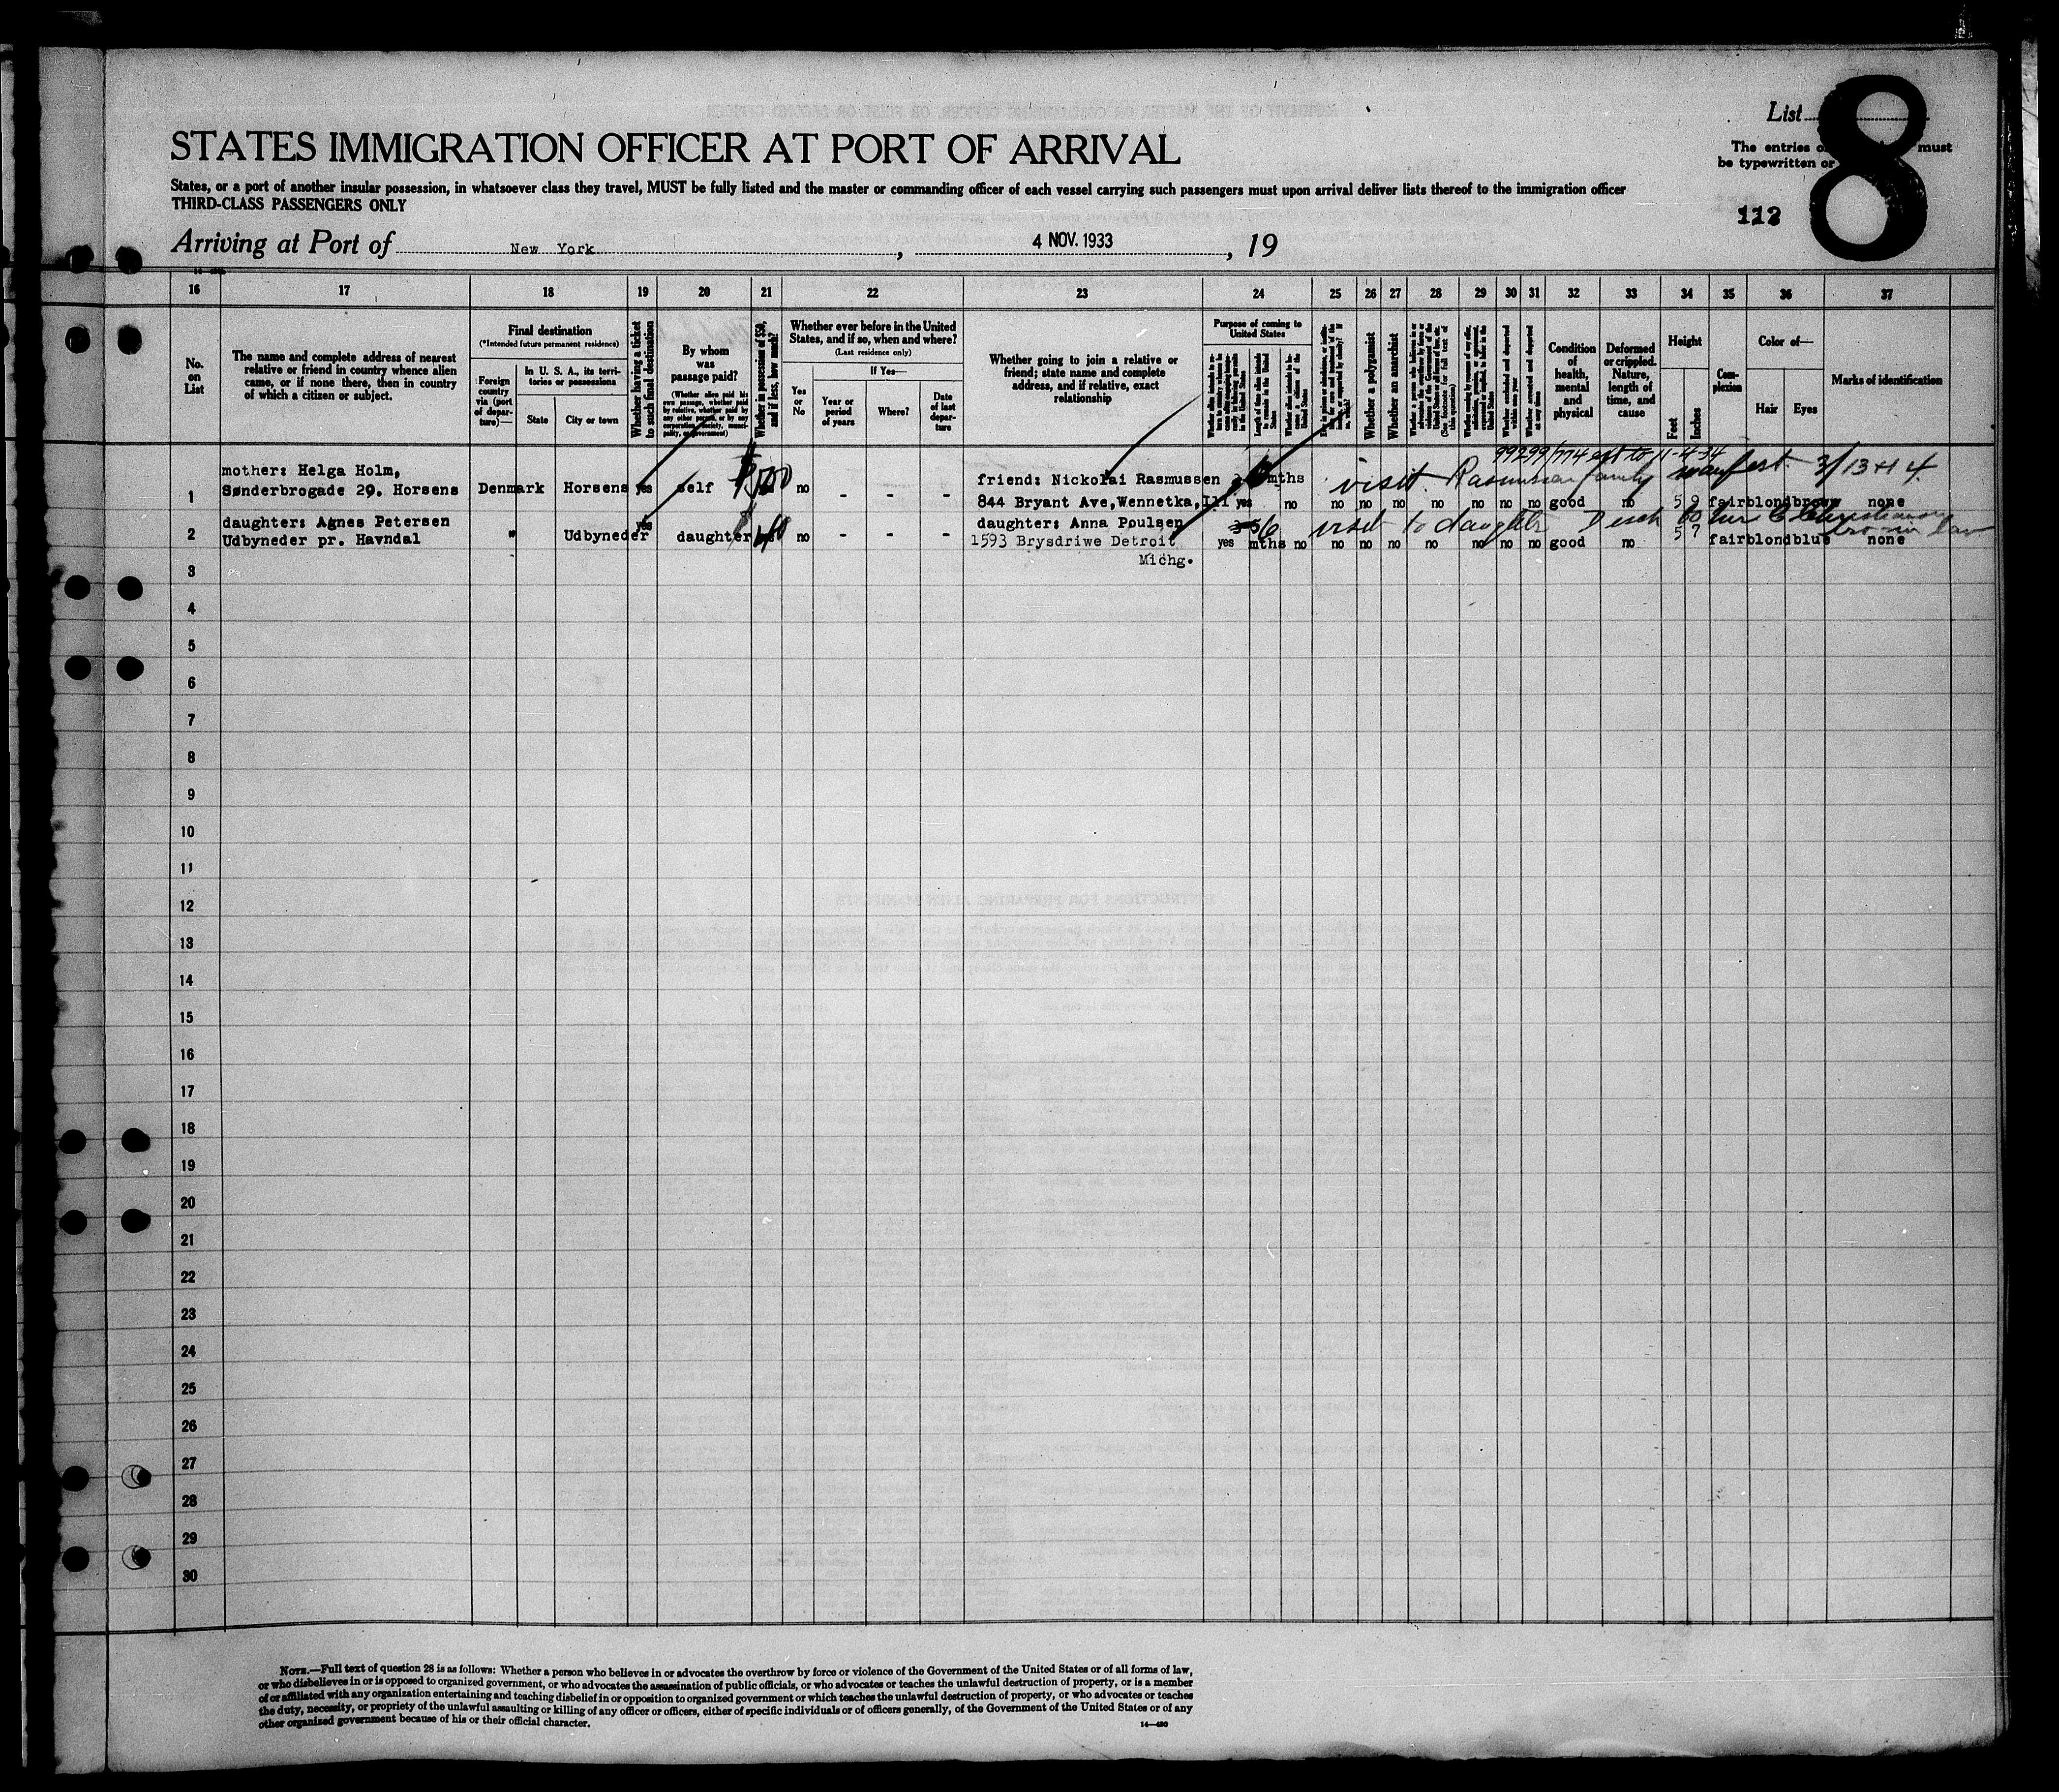 List
8
The entries must
be typewritten or
STATES IMMIGRATION OFFICER AT PORT OF ARRIVAL
States, or a port of another insular possession, in whatsoever class they travel, MUST be fully listed and the master or commanding officer of each vessel carrying such passengers must upon arrival deliver lists thereof to the immigration officer
THIRD-CLASS PASSENGERS ONLY
112
Arriving at Port of New York, 4 NOV. 1933, 19
16 17 18 19 20 21 22 23 24 25 26 27 28 29 30 31 32 33 34 35 36 37
No.
on
List
The name and complete address of nearest
relative or friend in country whence alien
came, or if none there, then in country
of which a citizen or subject.
Final destination
(*Intended future permanent residence)
Foreign
country
via (port
of depar-
ture)—
In U. S. A., its terri-
tories or possessions
State
City or town
Whether having a ticket
to such final destination
By whom
was
passage paid?
(Whether alien paid his
own passage, whether paid
by relative, whether paid by
any other person, or by any
corporation, society, munici-
pality, or government)
Whether in possession of $50,
and if less, how much?
Whether ever before in the United
States, and if so, when and where?
(Last residence only)
Yes
or
No
If Yes—
Year or
period
of years
Where?
Date
of last
depar-
ture
Whether going to join a relative or
friend; state name and complete
address, and if relative, exact
relationship
Purpose of coming to
United States
Whether a polygamist
Whether an anarchist
Condition
of
health,
mental
and
physical
Deformed
or crippled.
Nature,
length of
time, and
cause
Height
Feet
Inches
Com-
plexion
Color of—
Hair
Eyes
Marks of identification
99299/774 ext to 11-4-34
mother: Helga Holm,
Sønderbrogade 29. Horsens
1 Denmark Horsens yes self $500 no - - -
friend: Nickolai Rasmussen mths
844 Bryant Ave,Wennetka,Ill yes no
visit Rasmussen family manifest 3/13+14
no no no no no no no good no 5 9 fair blond brown none
daughter: Agnes Petersen
Udbyneder pr. Havndal
2 " Udbyneder yes daughter 40 no - - -
daughter: Anna Poulsen
1593 Brysdriwe Detroit
Michg.
6 visit to daughter
yes mths no no no no no no no no good no 5 7 fair blond blue none
3
4
5
6
7
8
9
10
11
12
13
14
15
16
17
18
19
20
21
22
23
24
25
26
27
28
29
30
NOTE.—Full text of question 28 is as follows: Whether a person who believes in or advocates the overthrow by force or violence of the Government of the United States or of all forms of law,
or who disbelieves in or is opposed to organized government, or who advocates the assassination of public officials, or who advocates or teaches the unlawful destruction of property, or is a member
of or affiliated with any organization entertaining and teaching disbelief in or opposition to organized government or which teaches the unlawful destruction of property, or who advocates or teaches
the duty, necessity, or propriety of the unlawful assaulting or killing of any officer or officers, either of specific individuals or of officers generally, of the Government of the United States or of any
other organized government because of his or their official character.
14—430